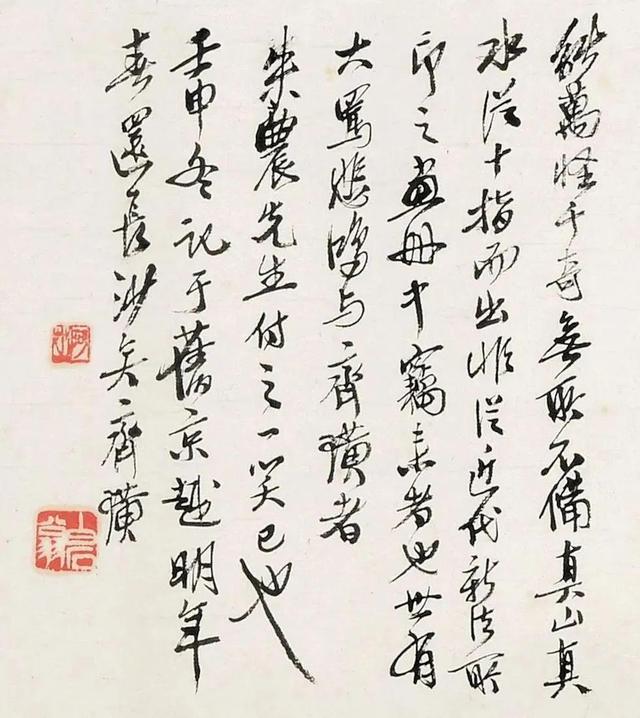 萬怪千奇無所不備真山真
水從十指而出從近代新法所
印之畫冊中竊來者也世有
大罵悲鴻与齊璜者
農先生付之一笑已也
壬申冬記于舊京越明年
春還長沙矣齊璜